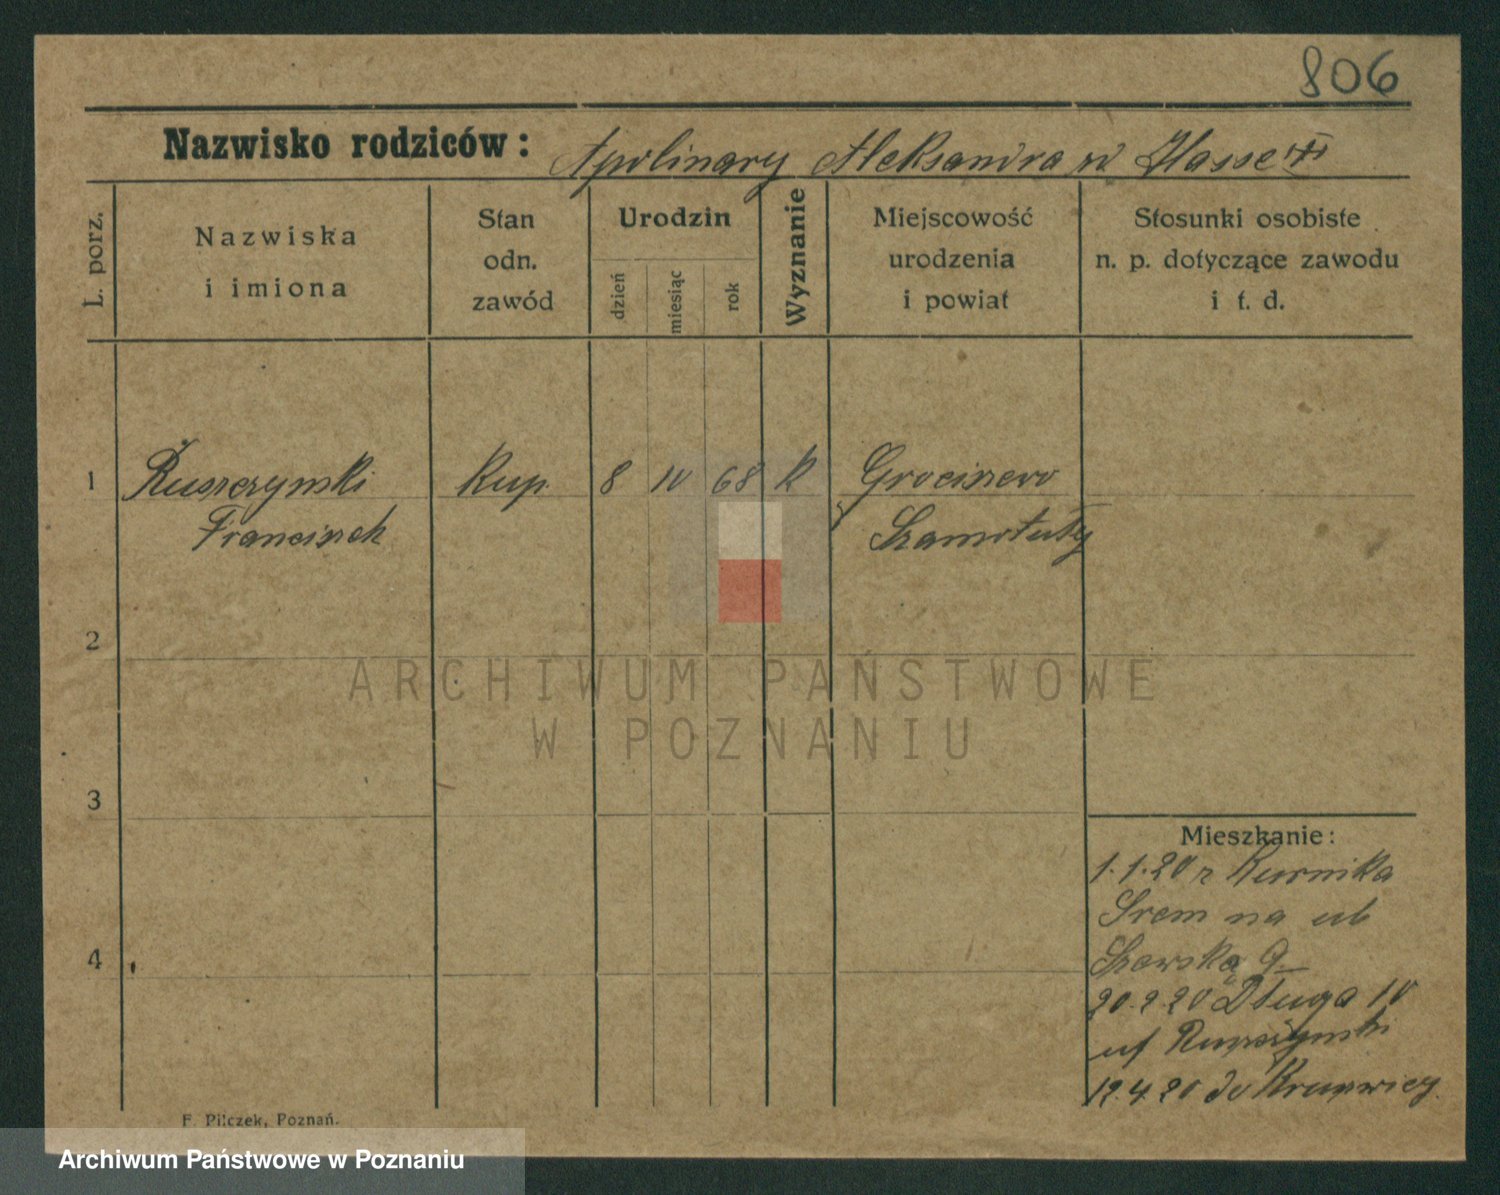 806
Nazwisko rodziców: Apolinary Aleksandra
L. porz.
Nazwiska
i imiona
Stan
odn.
zawód
Urodzin
dzień
miesiąc
rok
Wyznanie
Miejscowość
urodzenia
i powiat
Stosunki osobiste
n. p. dotyczące zawodu
i t. d.
1 Ruszczynski Kup. 8 10 68 K
Franciszek Szamotuły
2
3
4
ARCHIWUM PAŃSTWOWE
W POZNANIU
Mieszkanie:
1.1.20 z Kurnika
Srem na ul
9
20.2.20 Długa 10
19.4.20 do Kruszwicy.
F. Pilczek, Poznań.
Archiwum Państwowe w Poznaniu